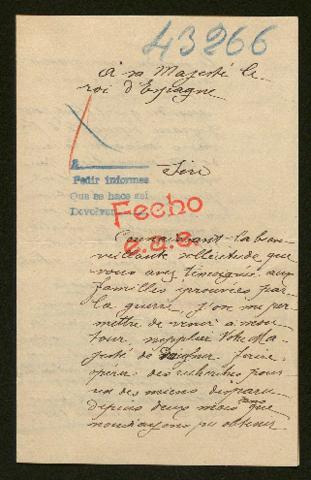 43266
A sa Majesté le
roi d'Espagne
Sire
A
Pedir informes
Que se hace así
Devolver
Fecho
e.a.s.
Connaissant la bien
veillante sollicitude que
vous avez témoignée aux
familles éprouvées par
la guerre, j'ose me per
mettre de venir à mon
tour, supplier Votre Ma
jesté de faire
opérer des recherches pour
un des miens disparu
depuis deux mois sans que
nous ayons pu obtenir